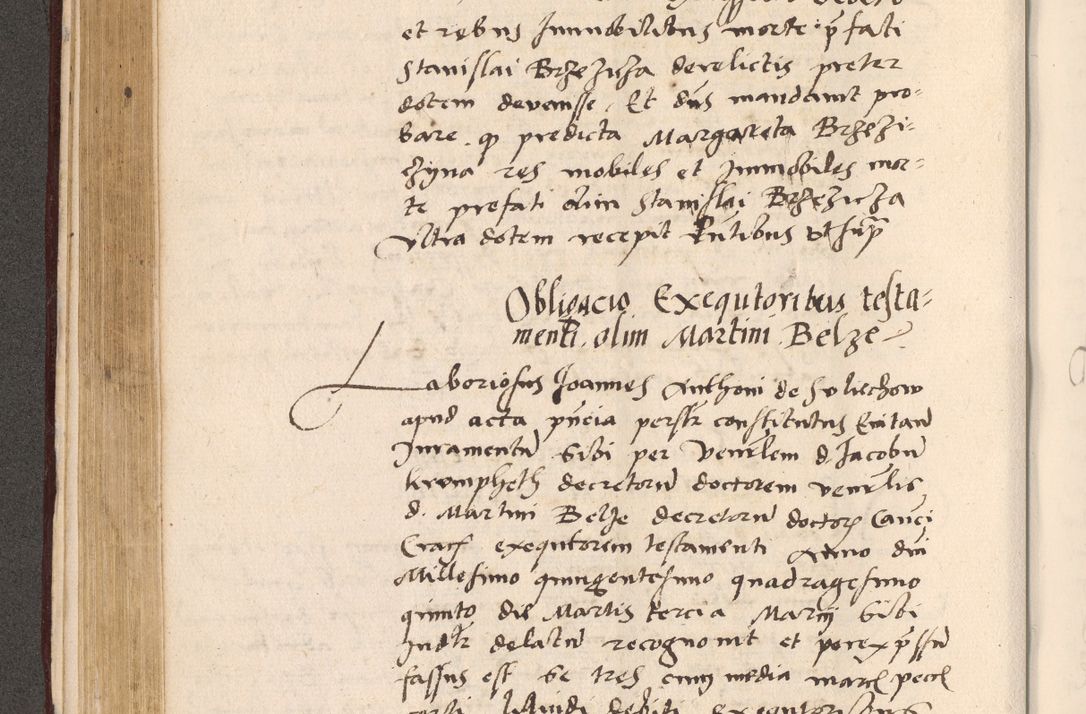 et rebus Immobilibus morte p̄fati
Stanislai Brzezicza derelictis preter
dotem devenisse. Et dn̄s mandavit pro-
bare. qp predicta Margareta Brzezi-
czyna res mobiles et Immobiles mor-
te prefati olim Stanislai Brzezicza
Ultra dotem recepit ut supra
Obligacio Exequtoribus testa-
menti olim Martini Belze
Laboriosus Joannes Anthoni de Sulechow
apud acta pn̄cia personalr̄ constitutus
Iuramentū sibi per Venerlem d. Jacobū
krompheth decretorū doctorem venerlis
d. Martini Belze decretorū doctor Canci
Crac exequtorem testamenti Anno dn̄i
Millesimo quingentesimo quadragesimo
quinto die Martis tercia Marcij sibi
Iudr̄ delatū recognovit et per expssū
fassus est se tres cum media marc pecc
liquidi debiti Exequtoribus